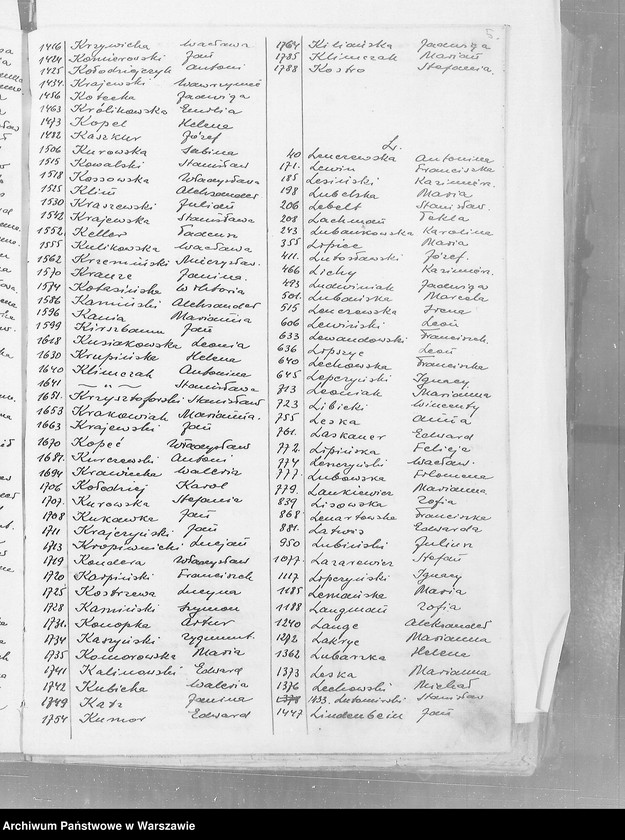 5.
1416 Krzywicka Wacława
1424 Komierowski Jan
1425 Kołodziejczyk Antoni
1434 Krajewski Wawrzyniec
1456 Kotecka Jadwiga
1463 Królikowska Emilia
1473 Kopel Helena
1482 Kaszkur Józef
1506 Kurowska Sabina
1515 Kowalski Stanisław
1518 Kossowska Władysława
1525 Klim Aleksander
1530 Kraszewski Julian
1542 Krajewska Stanisława
1552 Keller Tadeusz
1555 Kulikowska Wacława
1562 Krzemiński Mieczysław
1570 Krauze Janina
1574 Wiktoria
1586 Kamiński Aleksander
1596 Kania Marianna
1599 Kirszbaum Jan
1618 Kusiakowska Leonia
1630 Krupińska Helena
1640 Klimczak Antonina
1641 — " — Stanisława
1651. Krzysztoforski Stanisław
1653 Krakowiak Marianna
1663 Krajewski Jan
1670 Kopeć Władysław
1681. Kurczewski Antoni
1694 Krawiecka Waleria
1706 Kołodziej Karol
1707. Kurowska Stefania
1708 Kukawka Jan
1711 Krajczyński Jan
1713 Kropiwnicki Lucjan
1719 Kondera Władysław
1720 Karpiński Franciszek
1725 Kostrzewa Lucyna
1728 Kamiński Szymon
1731. Konopka Artur
1734 Kaszyński Zygmunt
1735 Komorowska Maria
1741 Kalinowski Edward
1742 Kubicka Waleria
1749 Katz Janina
1754 Kumor Edward
1764 Kiliańska Jadwiga
1785 Klimczak Marian
1788 Kostro Stefania
L.
40 Lenczewska Antonina
171. Lewin Franciszka
185 Lesiński Kazimierz
198 Lubelska Maria
206 Lebelt Stanisław
208 Lachman Tekla
243 Lubańkowska Karolina
355 Lipiec Maria
411. Lutosławski Józef
466 Lichy Kazimierz
493 Ludwiniak Jadwiga
501. Lubańska Marcela
515 Lenczewska Irena
606 Lewiński Leon
633 Lewandowski Franciszek
636 Lipszyc Leon
640 Lechowska Franciszka
645 Lopczyński Ignacy
713 Leoniak Marianna
723 Libicki Wincenty
755 Leska Anna
761. Laskauer Edward
772 Lipińska Felicja
774 Lenczyński Wacław
777. Lubowska Filomena
779. Lankiewicz Marianna
839 Lisowska Zofia
868 Lenartowska Franciszka
881. Latwis Edward
950 Lubiński Julian
1077. Lazarewicz Stefan
1117 Lopczyński Ignacy
1185 Lemańska Maria
1188 Langman Zofia
1240 Lange Aleksander
1272 Lakryc Marianna
1362 Lubarska Helena
1373 Leska Marianna
1376 Lechowski Michał
1433. Lubomirski Stanisław
1447 Lindenbein Jan
Archiwum Państwowe w Warszawie